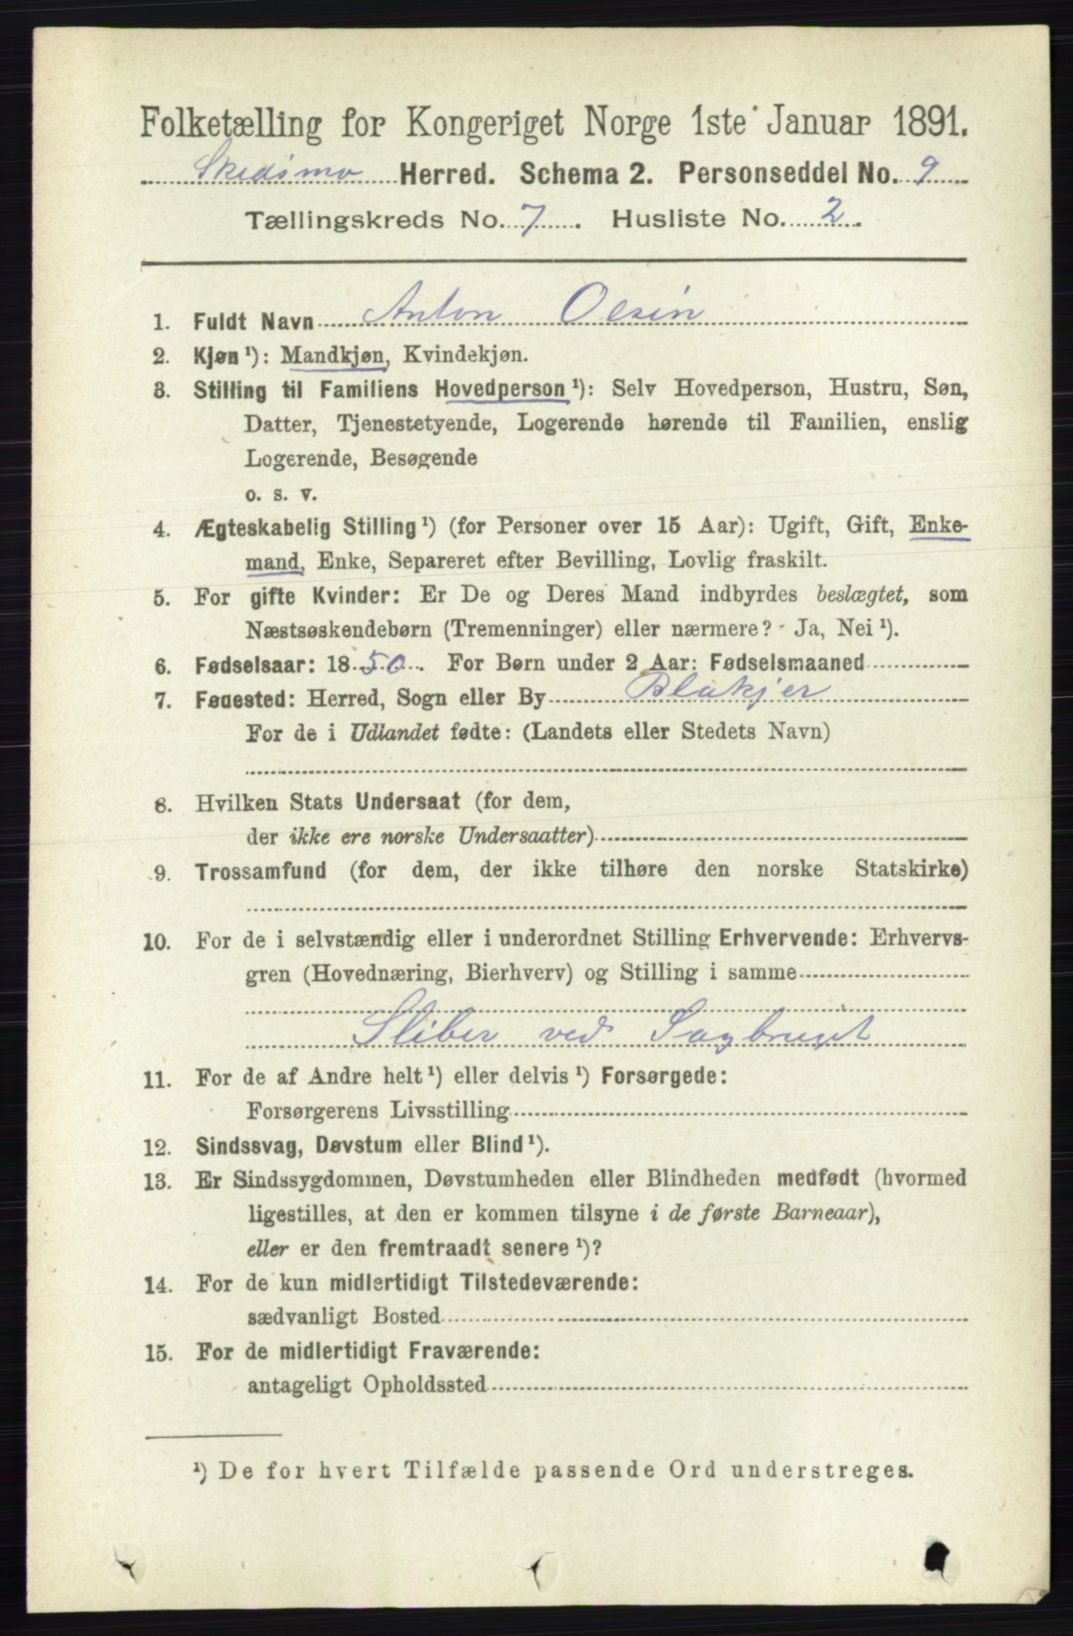 Folketælling for Kongeriget Norge 1ste Januar 1891.
Skedsmo Herred. Schema 2. Personseddel No. 9
Tællingskreds No. 7. Husliste No. 2.
1. Fuldt Navn Anton Olsen
2. Kjøn ¹): Mandkjøn, Kvindekjøn.
3. Stilling til Familiens Hovedperson ¹): Selv Hovedperson, Hustru, Søn,
Datter, Tjenestetyende, Logerende hørende til Familien, enslig
Logerende, Besøgende
o. s. v.
4. Ægteskabelig Stilling ¹) (for Personer over 15 Aar): Ugift, Gift, Enke-
mand, Enke, Separeret efter Bevilling, Lovlig fraskilt.
5. For gifte Kvinder: Er De og Deres Mand indbyrdes beslægtet, som
Næstsøskendebørn (Tremenninger) eller nærmere? Ja, Nei ¹).
6. Fødselsaar: 1850. For Børn under 2 Aar: Fødselsmaaned
7. Fødested: Herred, Sogn eller By Blakjer
For de i Udlandet fødte: (Landets eller Stedets Navn)
8. Hvilken Stats Undersaat (for dem,
der ikke ere norske Undersaatter)
9. Trossamfund (for dem, der ikke tilhøre den norske Statskirke)
10. For de i selvstændig eller i underordnet Stilling Erhvervende: Erhvervs-
gren (Hovednæring, Bierhverv) og Stilling i samme
Sliber ved Sagbruget
11. For de af Andre helt ¹) eller delvis ¹) Forsørgede:
Forsørgerens Livsstilling
12. Sindssvag, Døvstum eller Blind ¹).
13. Er Sindssygdommen, Døvstumheden eller Blindheden medfødt (hvormed
ligestilles, at den er kommen tilsyne i de første Barneaar),
eller er den fremtraadt senere ¹)?
14. For de kun midlertidigt Tilstedeværende:
sædvanligt Bosted
15. For de midlertidigt Fraværende:
antageligt Opholdssted
¹) De for hvert Tilfælde passende Ord understreges.